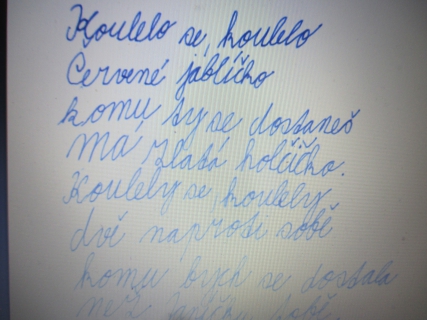 Koulelo se, koulelo
Červené jablíčko
komu ty se dostaneš
má zlatá holčičko.
Koulely se, koulely
dvě naproti sobě
komu bych se dostala
než